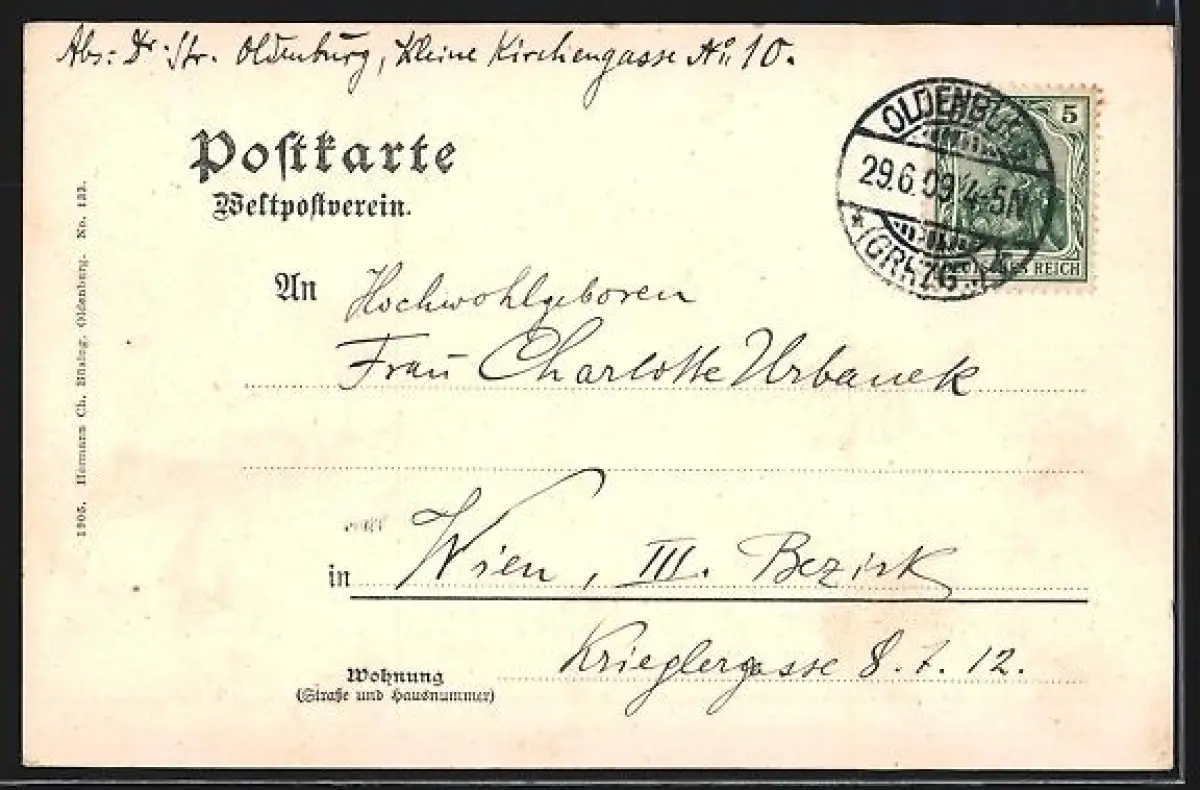 Abs: Dr. Str. Oldenburg, Kleine Kirchengasse No. 10.
Postkarte
Weltpostverein.
OLDENBURG
29.6.09. 4-5N
* (GRHZG.)
5
DEUTSCHES REICH
An Hochwohlgeboren
Frau Charlotte Urbanek
in Wien, III. Bezirk
Krieglergasse 8. t. 12.
Wohnung
(Straße und Hausnummer)
1905. Hermann Ch. Büsing, Oldenburg. No. 133.